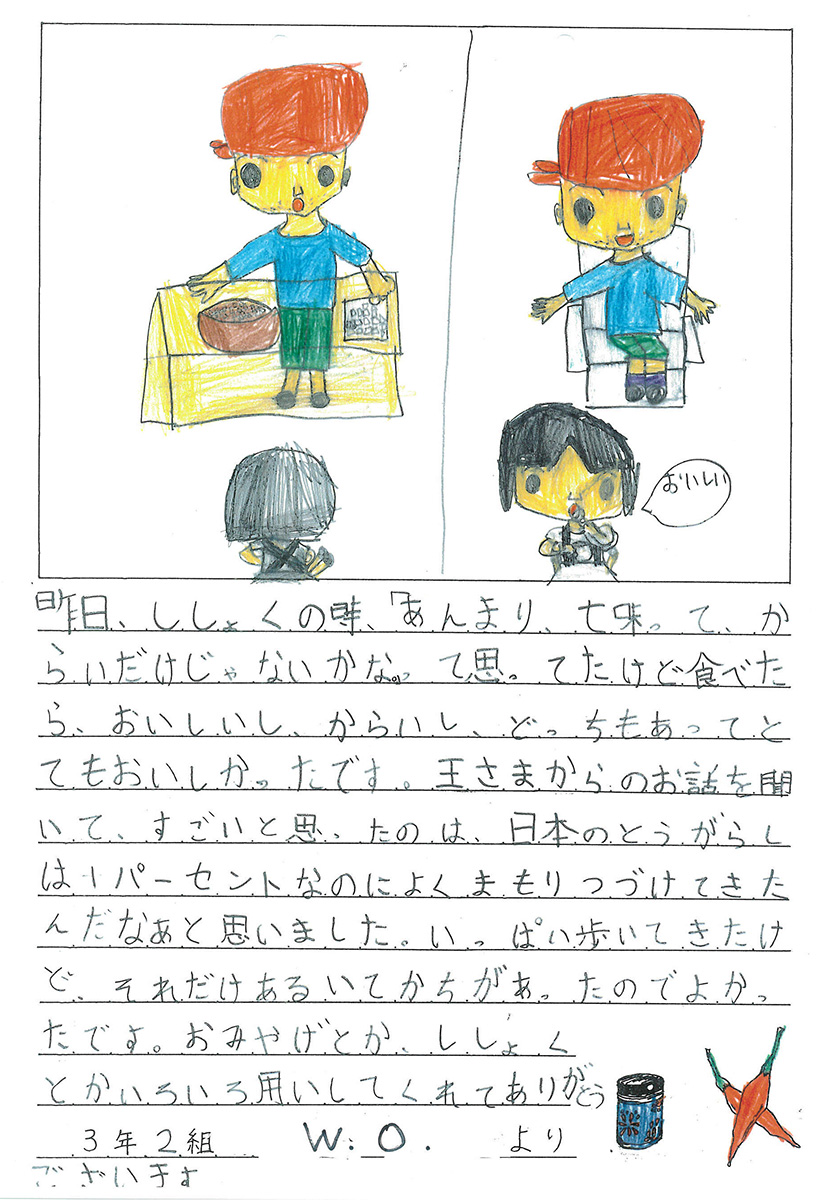 おいしい
昨日、ししょくの時、「あんまり、七味って、か
らいだけじゃないかな。」って思ってたけど食べた
ら、おいしいし、からいし、どっちもあってと
てもおいしかったです。王さまからのお話を聞
いて、すごいと思ったのは、日本のとうがらし
は1パーセントなのによくまもりつづけてきた
んだなあと思いました。いっぱい歩いてきたけ
ど、それだけあるいてかちがあったのでよかっ
たです。おみやげとか、ししょく
とかいろいろ用いしてくれてありがとう
3年2組 W.O. より
ございます